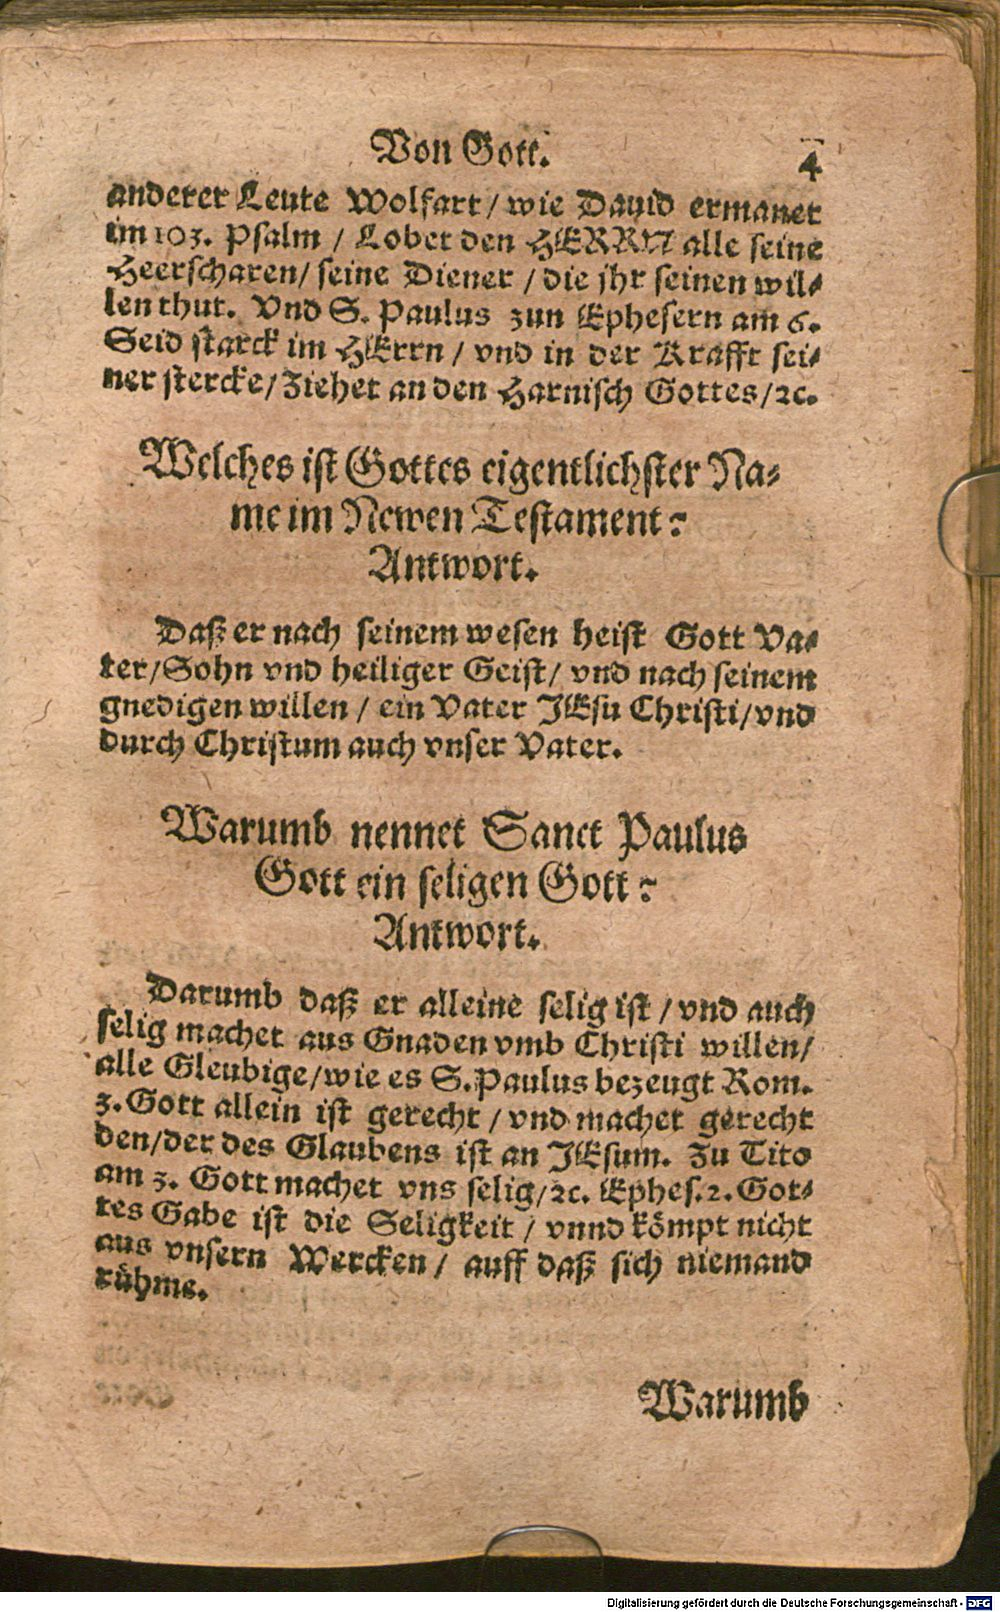 Von Gott. 4
anderer Leute Wolfart / wie Dauid ermanet
im 103. Psalm / Lobet den HERRN alle seine
Heerscharen / seine Diener / die jhr seinen wil⸗
len thut. Vnd S. Paulus zun Ephesern am 6.
Seid starck im HErrn / vnd in der Krafft sei⸗
ner stercke / Ziehet an den Harnisch Gottes / ꝛc.
Welches ist Gottes eigentlichster Na⸗
me im Newen Testament?
Antwort.
Daß er nach seinem wesen heist Gott Va⸗
ter / Sohn vnd heiliger Geist / vnd nach seinem
gnedigen willen / ein Vater JEsu Christi / vnd
durch Christum auch vnser Vater.
Warumb nennet Sanct Paulus
Gott ein seligen Gott?
Antwort.
Darumb daß er alleine selig ist / vnd auch
selig machet aus Gnaden vmb Christi willen /
alle Gleubige / wie es S. Paulus bezeugt Rom.
3. Gott allein ist gerecht / vnd machet gerecht
den / der des Glaubens ist an JEsum. Zu Tito
am 3. Gott machet vns selig / ꝛc. Ephes. 2. Got⸗
tes Gabe ist die Seligkeit / vnnd kömpt nicht
aus vnsern Wercken / auff daß sich niemand
rühme.
Warumb
Digitalisierung gefördert durch die Deutsche Forschungsgemeinschaft - DFG